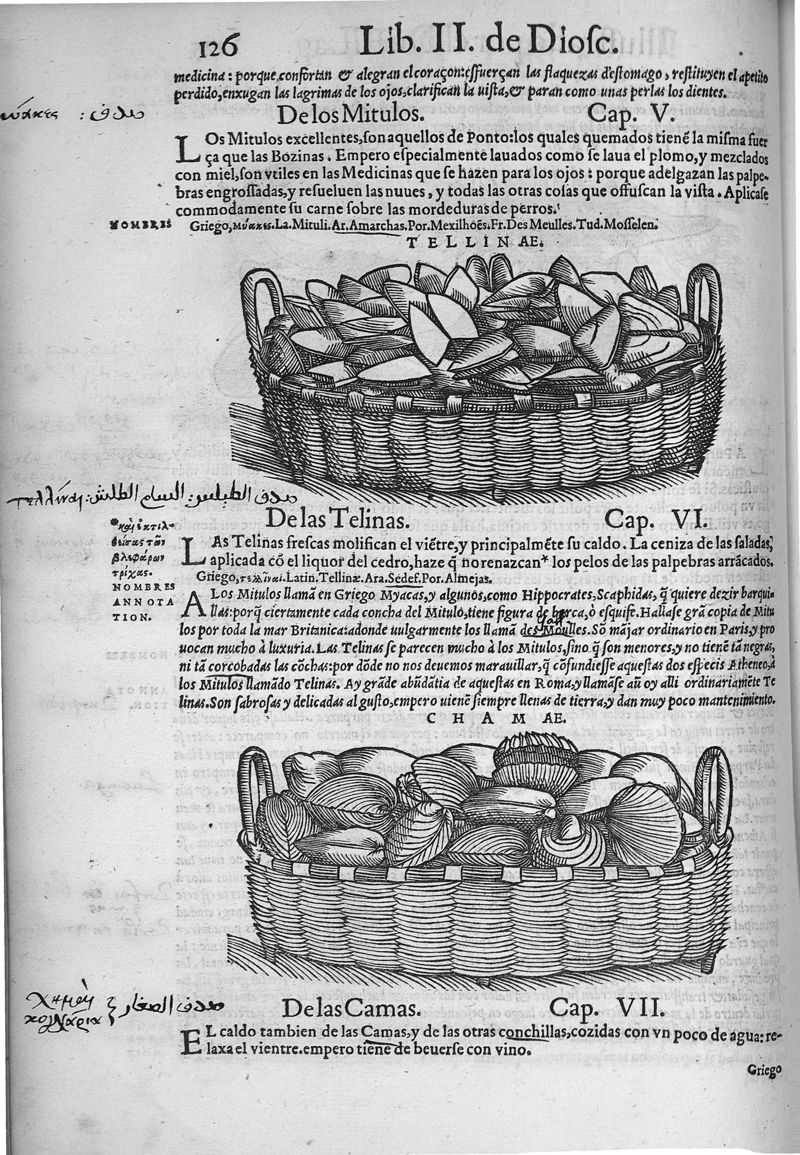 126 Lib. II. de Diosc.
medicina: porque, confortan & alegran el coraçon: esfuerçan las flaquezas d'estomago, restituyen el apetito
perdido, enxugan las lagrimas de los ojos, clarifican la uista, & paran como unas perlas los dientes.
De los Mitulos. Cap. V.
صدف :
LOs Mitulos excellentes, son aquellos de Ponto: los quales quemados tienẽ la misma fuer
ça que las Bozinas. Empero especialmente lauados como se laua el plomo, y mezclados
con miel, son vtiles en las Medicinas que se hazen para los ojos: porque adelgazan las palpe-
bras engrossadas, y resueluen las nuues, y todas las otras cosas que offuscan la vista. Aplicase
commodamente su carne sobre las mordeduras de perros.
NOMBRES Griego, μύακες. La. Mituli. Ar. Amarchas. Por. Mexilhoẽs. Fr. Des Meulles. Tud. Mosselen.
TELLINAE.
τελλίναι: صدف الطيلس:
De las Telinas. Cap. VI.
LAs Telinas frescas molifican el viẽtre, y principalmẽte su caldo. La ceniza de las saladas,
aplicada cõ el liquor del cedro, haze q̃ no renazcan* los pelos de las palpebras arrãcados.
*καὶ ἐκτιλ-
θείσας τῶν
βλεφάρων
τρίχας.
NOMBRES Griego, τελλίναι. Latin. Tellinæ. Ara. Sedef. Por. Almejas.
ANNOTA
TION.
ALos Mitulos llamã en Griego Myacas, y algunos, como Hippocrates, Scaphidas, q̃ quiere dezir barqui-
llas: porq̃ ciertamente cada concha del Mitulo, tiene figura de barca, ò esquife. Hallase grã copia de Mitu
los por toda la mar Britanica: adonde uulgarmente los llamã des Moulles. Sõ mãjar ordinario en Paris, y pro
uocan mucho à luxuria. Las Telinas se parecen mucho à los Mitulos, sino q̃ son menores, y no tienẽ tã negras,
ni tã corcobadas las cõchas: por dõde no nos deuemos marauillar, q̃ cõfundiesse aquestas dos especis Atheneo, à
los Mitulos llamãdo Telinas. Ay grãde abũdãtia de aquestas en Roma, y llamãse aũ oy alli ordinariamẽte Te
linas. Son sabrosas y delicadas al gusto, empero uienẽ siempre llenas de tierra, y dan muy poco mantenimiento.
CHAMAE.
صدف الصغار
De las Camas. Cap. VII.
EL caldo tambien de las Camas, y de las otras conchillas, cozidas con vn poco de agua: re-
laxa el vientre. empero tiene de beuerse con vino.
Griego